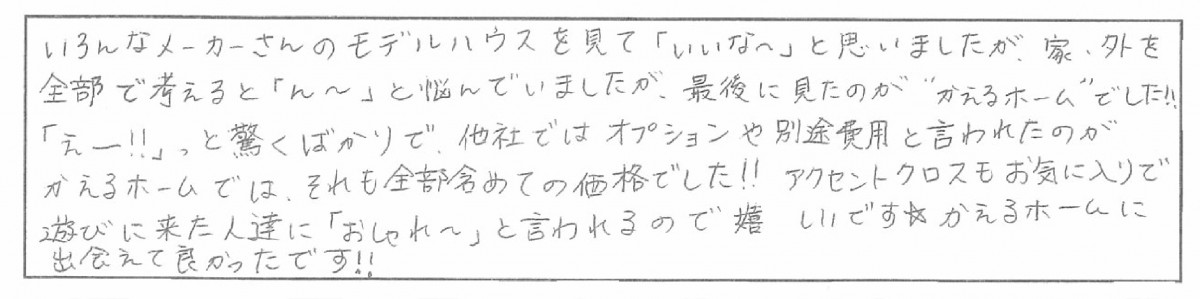 いろんなメーカーさんのモデルハウスを見て「いいな～」と思いましたが、家、外を
全部で考えると「ん～」と悩んでいましたが、最後に見たのが"かえるホーム"でした!!
「えー!!」っと驚くばかりで、他社ではオプションや別途費用と言われたのが
かえるホームでは、それも全部含めての価格でした!! アクセントクロスもお気に入りで
遊びに来た人達に「おしゃれ～」と言われるので嬉しいです☆かえるホームに
出会えて良かったです!!